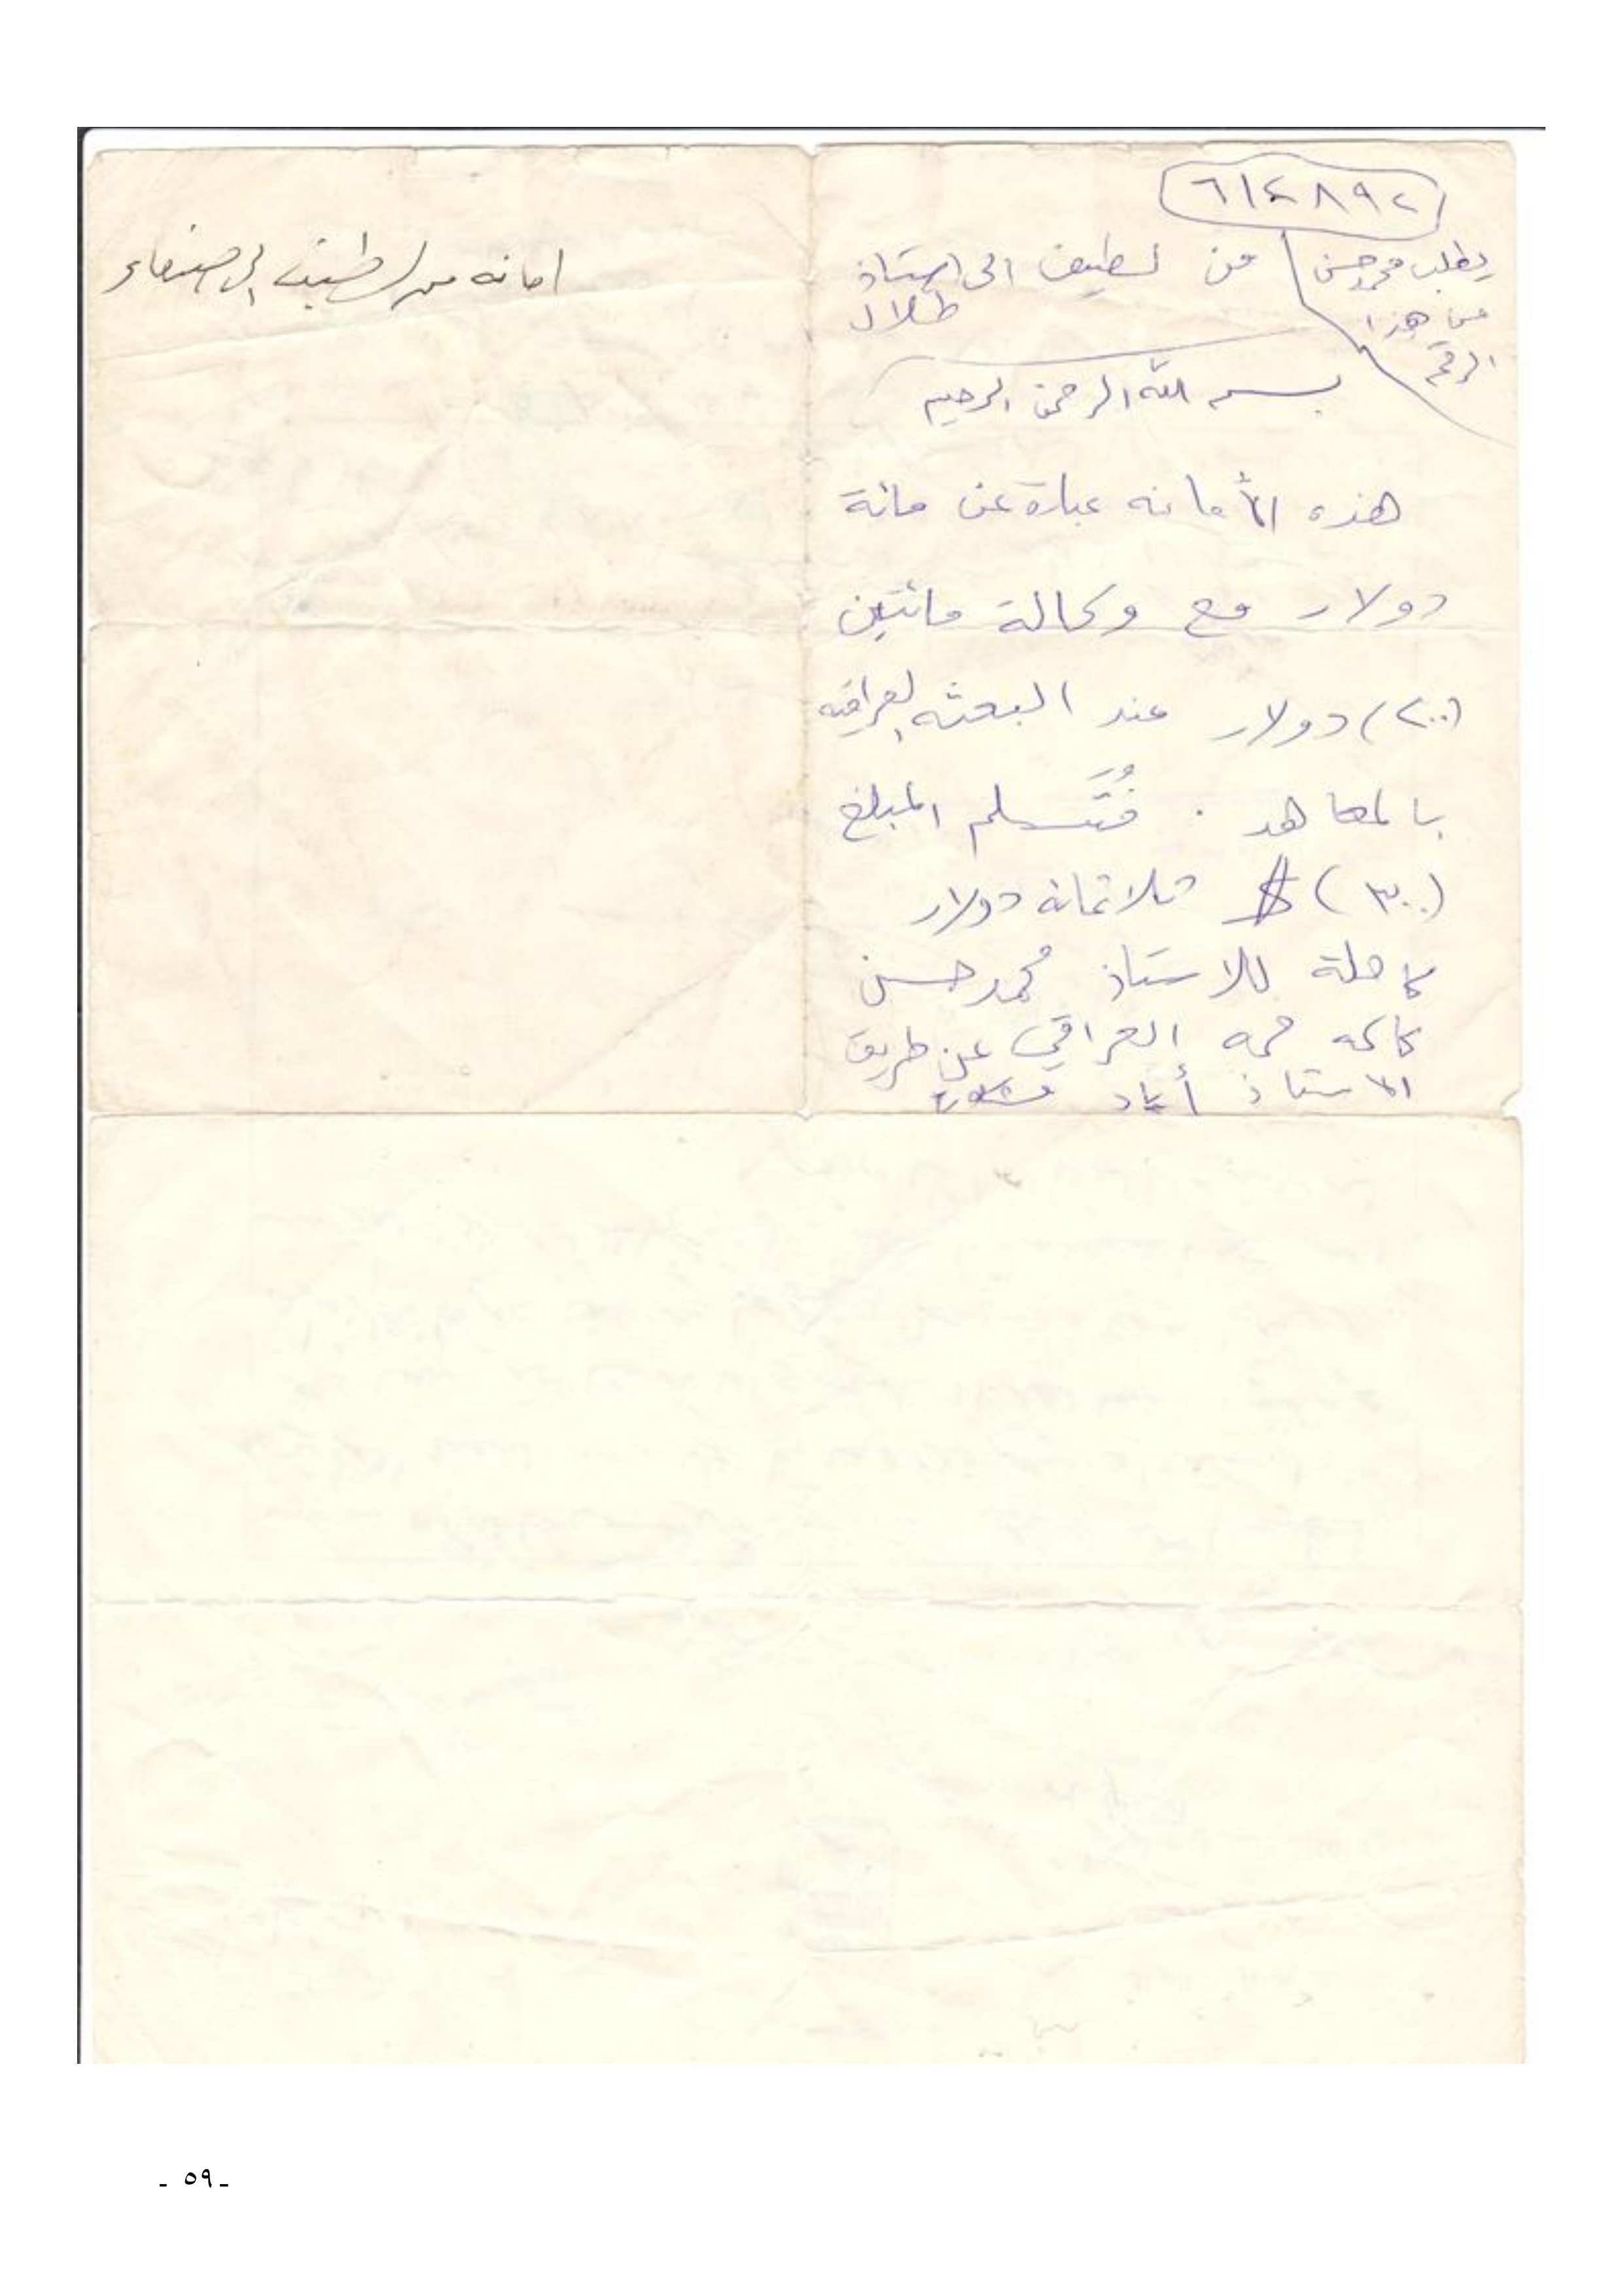 ٦١٤٨٩٢
يطلب محمد حسن
من هذا
الرقم
من لطيف الى استاذ
طلال
بسم الله الرحمن الرحيم
هذه الأمانه عبارة عن مائة
دولار مع وكالة مائتين
(٢٠٠) دولار عند البعثه العراقيه
بالمعاهد . فتسلم المبلغ
(٣٠٠) $ ثلاثمائة دولار
كاملة للاستاذ محمد حسن
كاكه حمه العراقي عن طريق
الاستاذ أياد
امانه من لطيف الى صنعاء
- ٥٩ -